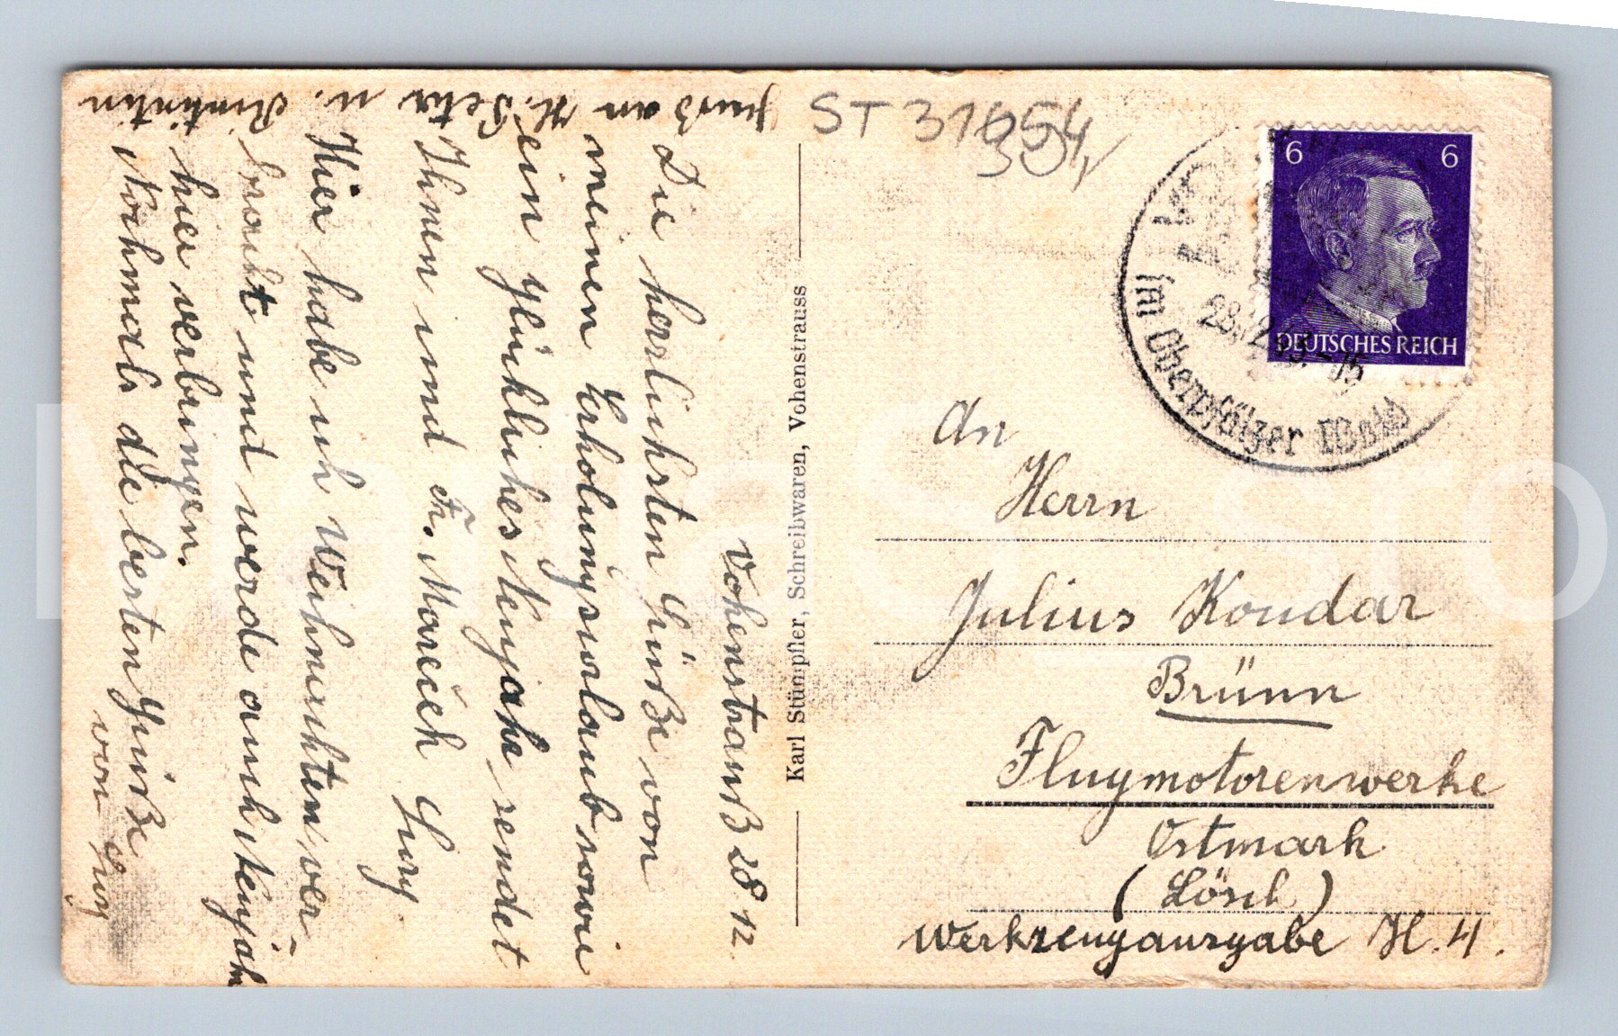 ST 31654
304
6 6
DEUTSCHES REICH
28.12.43.-15
im Oberpfälzer Wald
Vohenstrauß 28 12
Die herzlichsten Grüße von
meinen Erholungsurlaub sowie
ein glückliches Neujahr sendet
Ihnen und Fr. Mareček Gury.
Hier habe ich Weihnachten ver-
bracht und werde auch Neujahr
hier verbringen.
Nochmals die besten Grüße
von Gury
Gruß an H. Peter u.
Karl Stümpfler, Schreibwaren, Vohenstrauss
An
Herrn
Julius Koudar
Brünn
Flugmotorenwerke
Ostmark
(Lösch)
Werkzeugausgabe H. 4.